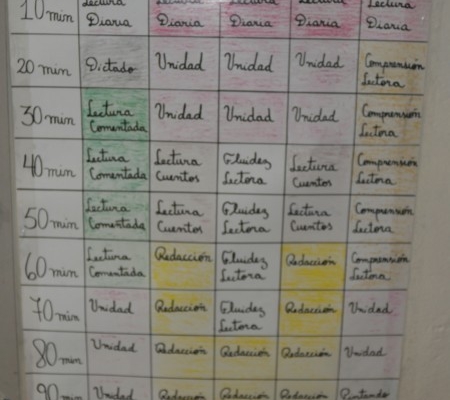 10 min Lectura Diaria Lectura Diaria Lectura Diaria Lectura Diaria Lectura Diaria
20 min Dictado Unidad Unidad Unidad Comprensión Lectora
30 min Lectura Comentada Unidad Unidad Unidad Comprensión Lectora
40 min Lectura Comentada Lectura Cuentos Fluidez Lectora Lectura Cuentos Comprensión Lectora
50 min Lectura Comentada Lectura Cuentos Fluidez Lectora Lectura Cuentos Comprensión Lectora
60 min Lectura Comentada Redacción Fluidez Lectora Redacción Comprensión Lectora
70 min Unidad Redacción Fluidez Lectora Redacción Unidad
80 min Unidad Redacción Redacción Redacción Unidad
90 min Unidad Redacción Redacción Redacción Pintando